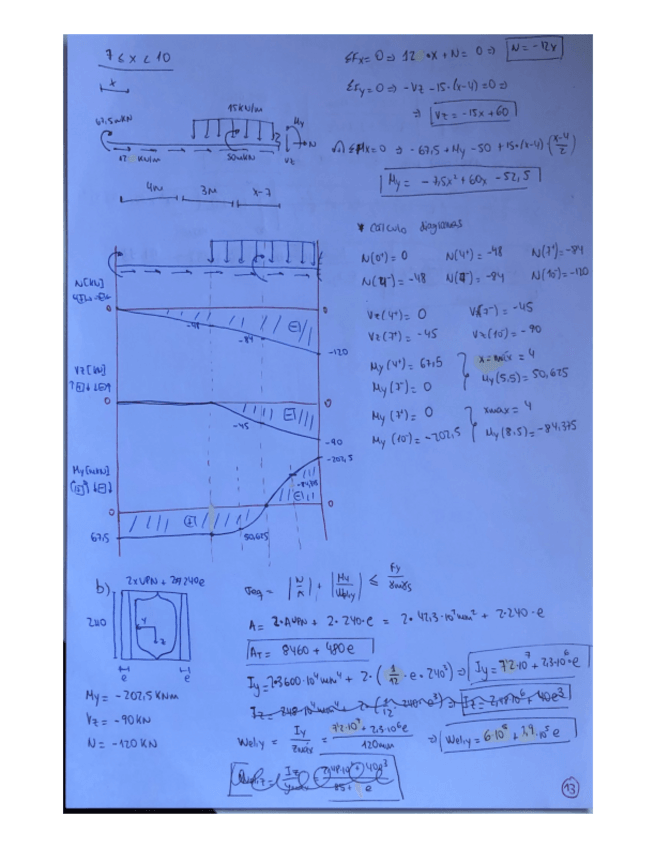 7 ≤ x < 10
ΣFx = 0 ⇒ 12·x + N = 0 ⇒ N = -12x
x
ΣFy = 0 ⇒ -Vz - 15·(x-4) = 0 ⇒
⇒ Vz = -15x + 60
15KN/m
67,5mKN
My
N
Vz
12 KN/m
50mKN
ΣMx = 0 ⇒ -67,5 + My - 50 + 15·(x-4)·(x-4/2)
My = -7,5x² + 60x - 52,5
4m 3m x-7
* Cálculo diagramas
N(0⁺) = 0 N(4⁺) = -48 N(7⁺) = -84
N(4⁻) = -48 N(7⁻) = -84 N(10⁻) = -120
N [KN]
0 0
-48
-84
-120
Vz(4⁺) = 0 V(7⁻) = -45
Vz(7⁺) = -45 Vz(10⁻) = -90
Vz [KN]
0 0
-45
-90
My(4⁺) = 67,5 xmax = 4
My(7⁻) = 0 My(5.5) = 50,625
My(7⁺) = 0 xmax = 4
My(10⁻) = -202,5 My(8.5) = -84,375
My [mKN]
-202,5
-84,375
0 0
67,5
50,625
b)
2xUPN + 2φ240e
240
y
z
e e
My = -202,5 KNm
Vz = -90 KN
N = -120 KN
σeq = |N/A| + |My/Wely| ≤ Fy/γM5
A = 2·AUPN + 2·240·e = 2·42,3·10²mm² + 2·240·e
AT = 8460 + 480e
Iy = 2·3600·10⁴mm⁴ + 2·(1/12·e·240³) ⇒ Iy = 7'2·10⁷ + 2,3·10⁶·e
Wel,y = Iy/zmax = 7'2·10⁷ + 2,3·10⁶e/120mm ⇒ Wel,y = 6·10⁵ + 1,9·10⁵e
13